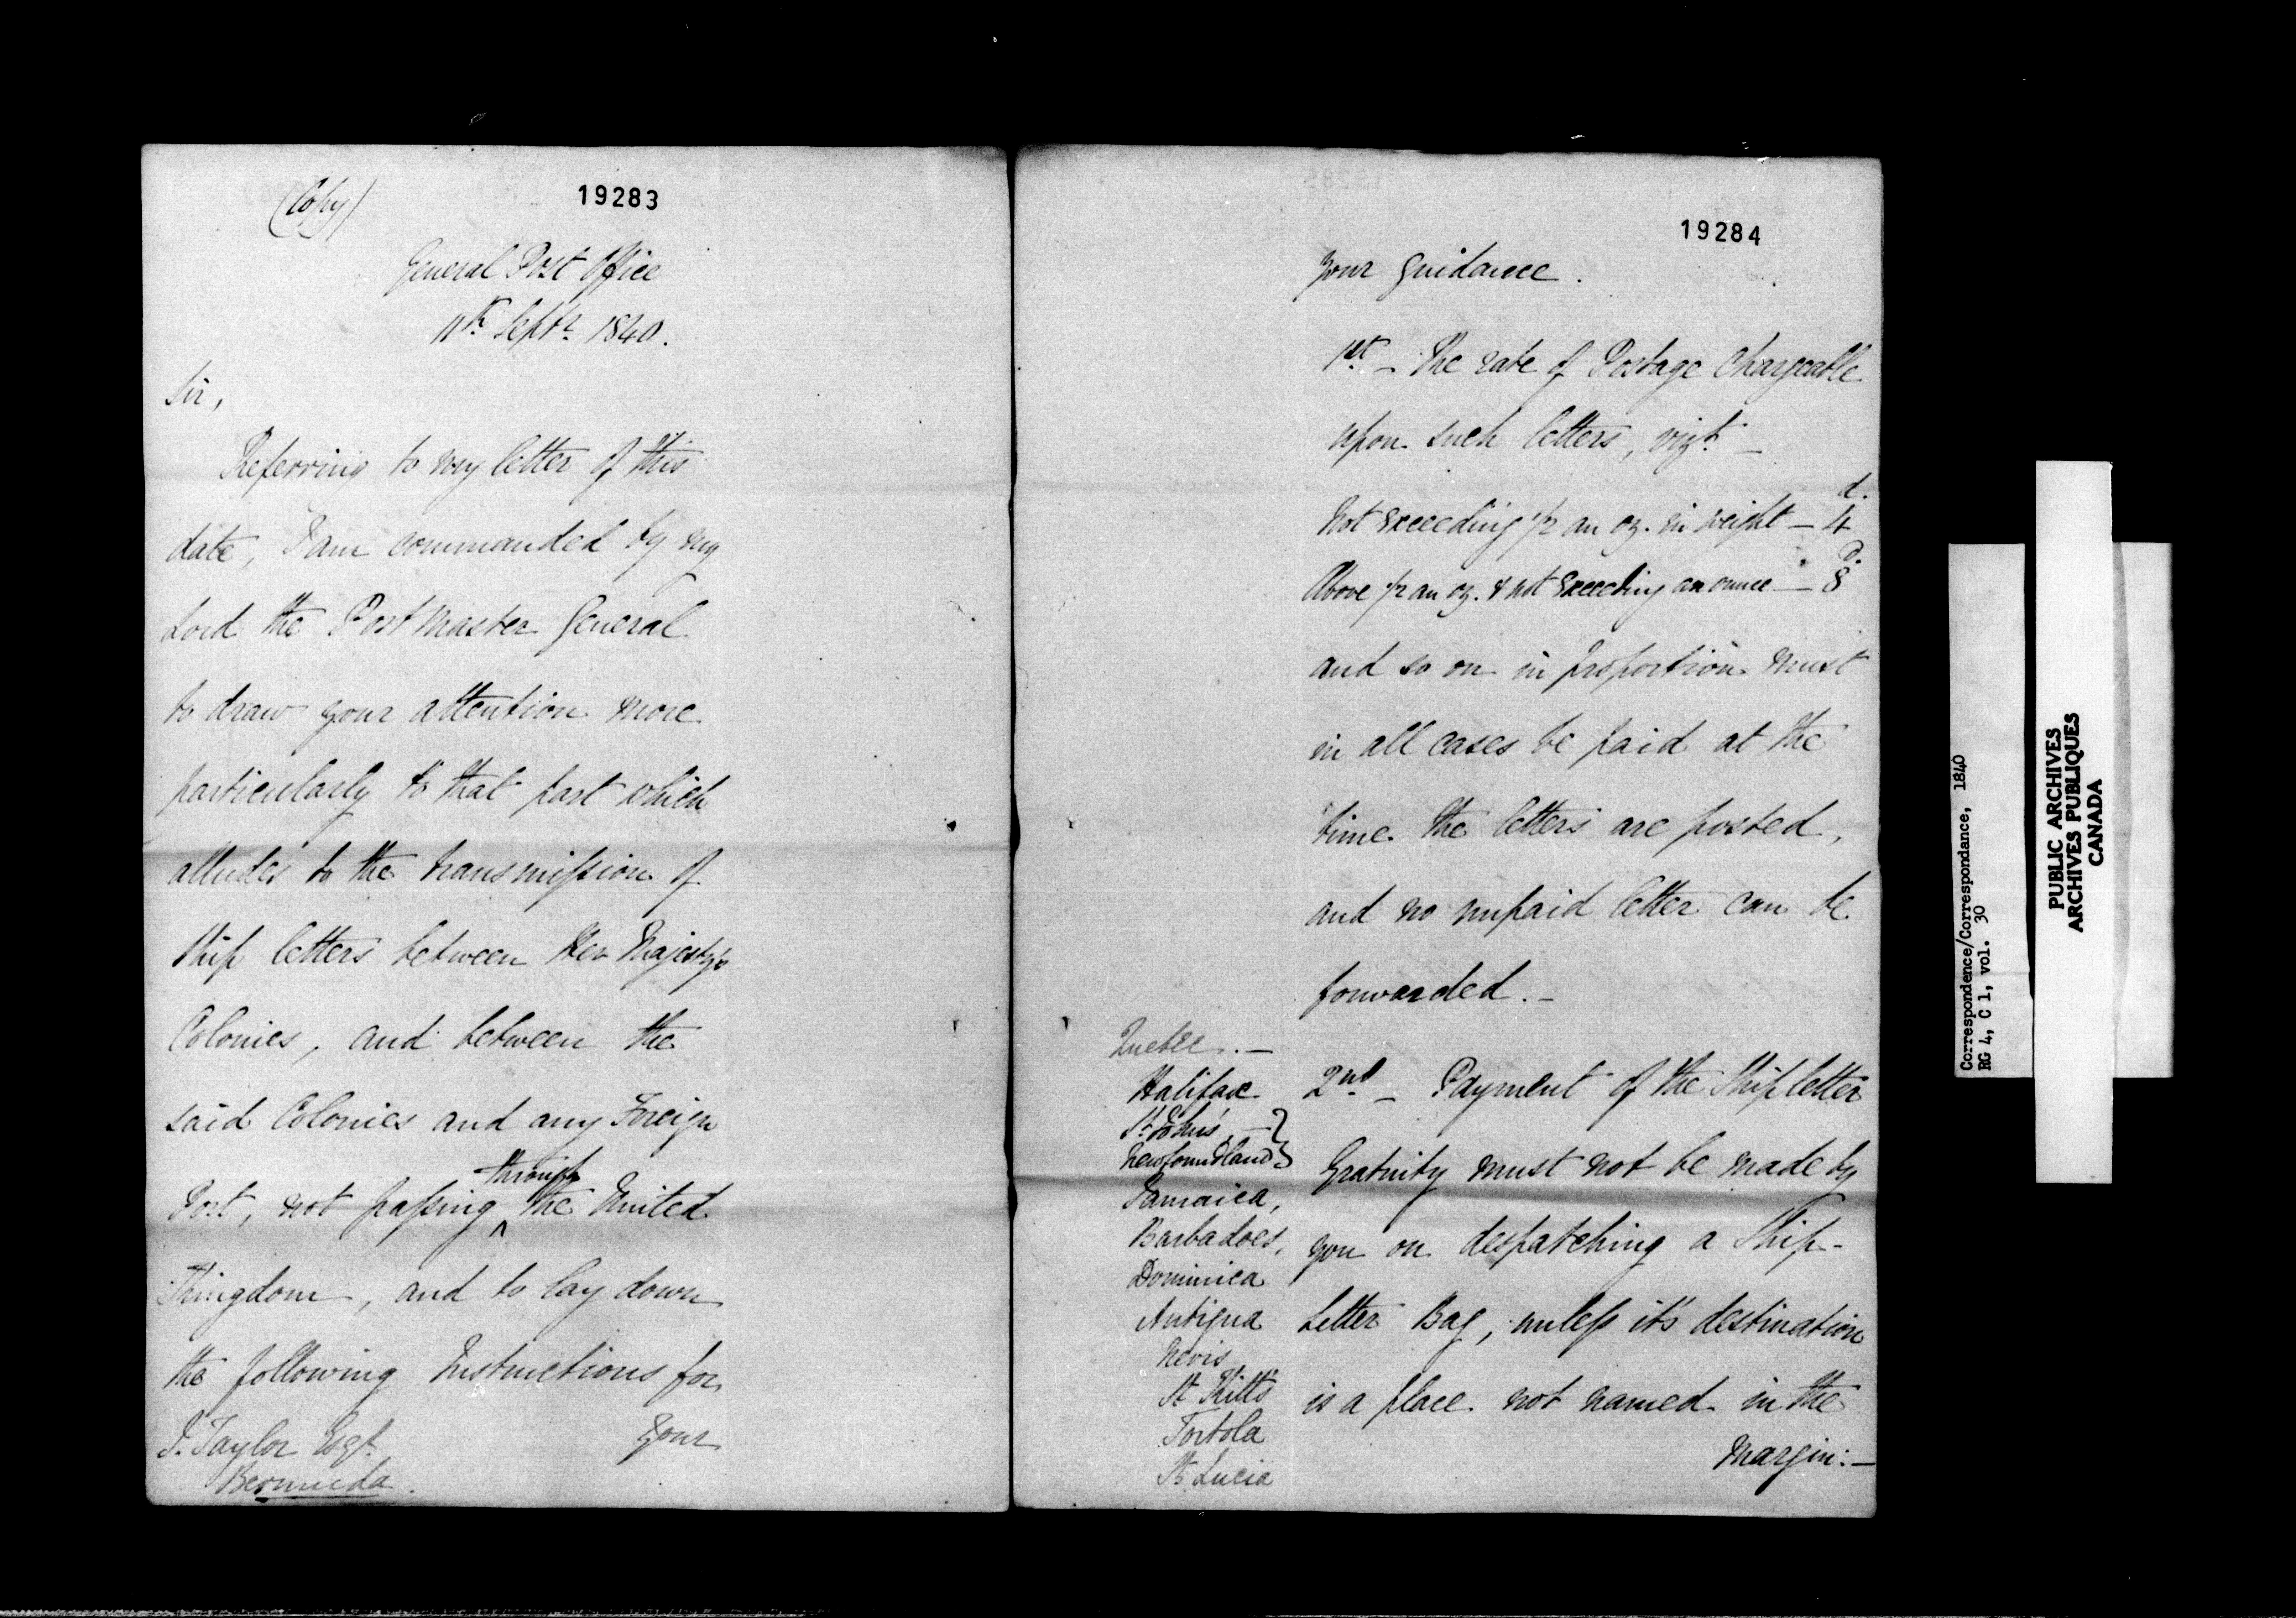 (Copy)
19283
General Post Office
11th Septr. 1840.
Sir,
Referring to my letter of this
date, I am commanded by my
Lord the Postmaster General
to draw your attention more
particularly to that part which
alludes to the transmission of
Ship letters between Her Majesty's
Colonies, and between the
said Colonies and any Foreign
Port, not passing through the United
Kingdom, and to lay down
the following Instructions for
your
J. Taylor Esqr.
Bermuda.
19284
your guidance.
1st. - The rate of Postage chargeable
upon such letters, vizt. -
d.
Not exceeding 1/2 an oz. in weight - 4
Above 1/2 an oz. & not exceeding an ounce - 8
and so on in proportion must
in all cases be paid at the
time the letters are posted,
and no unpaid letter can be
forwarded. -
2nd. - Payment of the Ship letter
Gratuity must not be made by
you on despatching a Ship-
Letter Bag, unless it's destination
is a place not named in the
Margin: -
Quebec. -
Halifax
St. John's -
Newfoundland
Jamaica,
Barbadoes,
Dominica
Antigua
Nevis
St Kitt's
Tortola
St Lucia
Correspondence/Correspondance, 1840
RG 4, C 1, vol. 30
PUBLIC ARCHIVES
ARCHIVES PUBLIQUES
CANADA